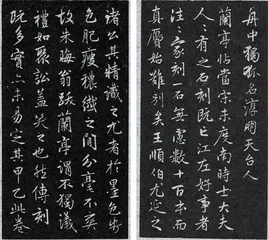 舟中獨孤名淳朋天台人
蘭亭帖當宋未度南時士大夫
人人有之石刻既亡江左好事者
往往家刻一石無慮數十百本而
真贗始難別矣王順伯尤延之
諸公其精識之尤者於墨色紙
色肥瘦穠纖之間分毫不爽
故朱晦翁跋蘭亭謂不獨議
禮如聚訟盖笑之也然傳刻
既多實亦未易定其甲乙此卷